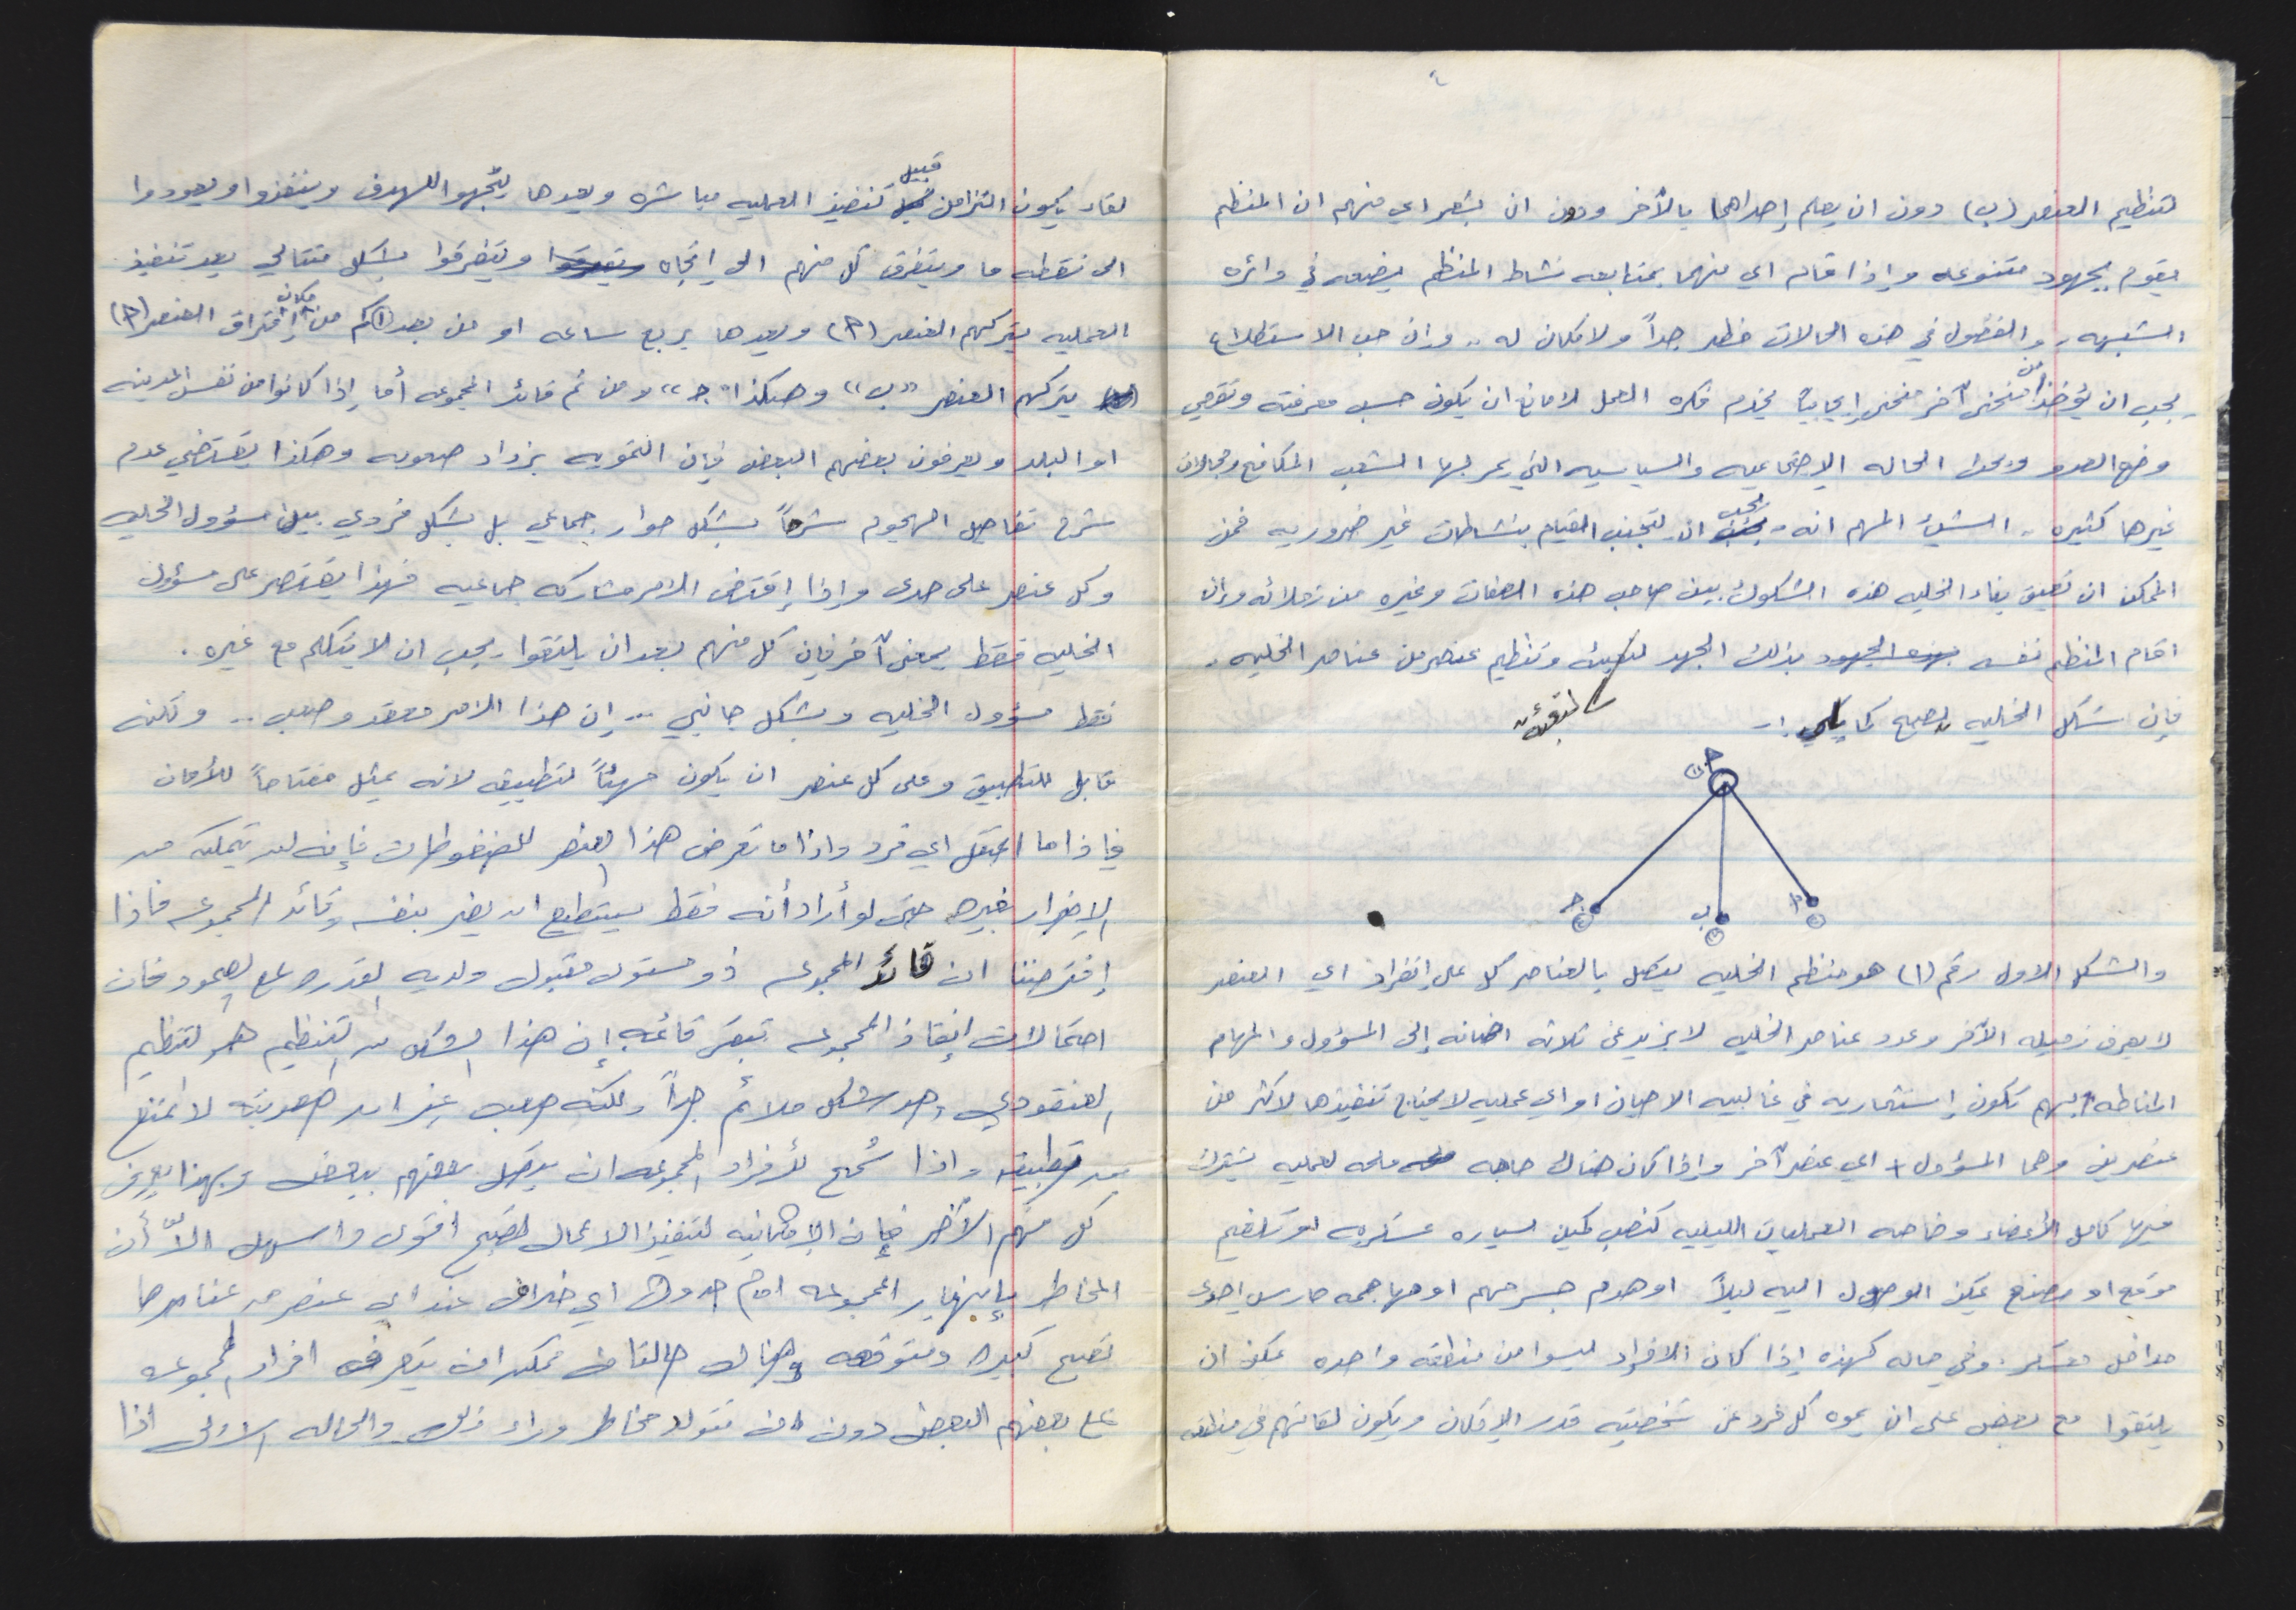 ٤
لتنظيم العنصر (ب) دون ان يعلم إحداهما بالآخر ودون ان يشعر اي منهم ان المنظم
يقوم بجهود متنوعه وإذا قام اي منهما بمتابعه نشاط المنظم يضعه في دائره
الشبهه .. والفضول في هذه الحالات خطر جداً ولا مكان له .. وإن حب الاستطلاع
يجب ان يؤخذ من منحنى آخر منحنى إيجابياً يخدم فكره العمل لا مانع ان يكون حسب معرفته وتقصي
وضع العدو الحاله الإجتماعيه والسياسيه التي يمر بها الشعب المكافح ومجالات
غيرها كثيره .. الشيئ المهم انه يجب ان يتجنب القيام بنشاطات غير ضروريه فمن
الممكن ان تعيق بناء الخليه هذه الشكوك بين صاحب هذه الصفات وغيره من زملائه وإن
اقام المنظم نفسه بهذه الجهود بذلك الجهد لتعبئة وتنظيم عنصر من عناصر الخليه .
لتعبئة
فإن شكل الخليه يصبح كما يلي :-
أ ١
ج ب أ
والشكل الاول رقم (١) هو منظم الخليه يتصل بالعناصر كل على إنفراد اي العنصر
لا يعرف زميله الآخر وعدد عناصر الخليه لا يزيد عن ثلاثه اضافه إلى المسؤول والمهام
المناطه بهم تكون إستثماريه في غالبيه الاحيان او اي عمليه لا يحتاج تنفيذها لاكثر من
عنصرين وهما المسؤول + اي عنصر آخر وإذا كان هناك حاجه ملحه لعمليه يشترك
فيها كامل الأعضاء وخاصه العمليات الليليه كنصب كمين لسياره عسكريه او تلغيم
موقع او مصنع يمكن الوصول اليه ليلاً او هدم جسر مهم او مهاجمه حارس احدى
مداخل معسكر . وفي حاله كهذه إذا كان الافراد ليسوا من منطقه واحده يمكن ان
يلتقوا مع بعض على ان يموه كل فرد عن شخصيته قدر الإمكان ويكون لقائهم في منطقه
لقاء يكون التزامن قبيل تنفيذ العمليه مباشره وبعدها يتجهوا للهدف وينفذوا ويعودوا
الى نقطه ما ويتفرق كل منهم الى إتجاه ويتفرقوا بشكل متتالي بعد تنفيذ
العمليه يتركهم العنصر (أ) وبعدها بربع ساعه او من بعد ١ كم من مكان إفتراق العنصر (أ)
يتركهم العنصر "ب" وهكذا "ج" ومن ثم قائد المجموعه أما إذا كانوا من نفس المدينه
او البلد ويعرفون بعضهم البعض فإن التمويه يزداد صعوبه وهكذا يقتضي عدم
شرح تفاصيل الهجوم شرحاً بشكل حوار جماعي بل بشكل فردي بين مسؤول الخليه
وكل عنصر على حدى وإذا إقتضى الامر مشاركه جماعيه فهذا يقتصر على مسؤول
الخليه فقط بمعنى آخر فإن كل منهم بعد ان يلتقوا يجب ان لا يتكلم مع غيره .
فقط مسؤول الخليه وبشكل جانبي ... إن هذا الامر معقد وصعب .. ولكنه
قابل للتطبيق وعلى كل عنصر ان يكون مهيئاً لتطبيقه لانه يمثل مفتاحاً للأمان
فإذا ما اعتقل اي فرد وإذا ما تعرض هذا العنصر للضغوطات فإنه لن يتمكن من
الإضرار بغيره حتى لو أراد أنه فقط يستطيع ان يضر بنفسه وقائد المجموعه فاذا
إفترضنا ان قائد المجموعه ذو مستوى مقبول ولديه القدره على الصمود فان
احتمالات إنقاذ المجموعه تبقى قائمه إن هذا الشكل من التنظيم هو لتنظيم
العنقودي وهو شكل ملائم جداً ولكنه صعب غير ان صعوبته لا تمنع
من تطبيقه واذا سُمح لأفراد المجموعه ان يتصل بعضهم ببعض وبهذا يعرف
كل منهم الآخر فإن الإمكانيه لتنفيذ الاعمال تصبح اقوى واسهل الاّ أن
المخاطر بإنهيار المجموعه امام حدوث اي خلاف عند اي عنصر من عناصرها
تصبح كبيره ومتوقعه وهناك حالتان ممكن ان يتعرف افراد المجموعه
على بعضهم البعض دون ان تتولد مخاطر وراء ذلك والحاله الاولى اذا